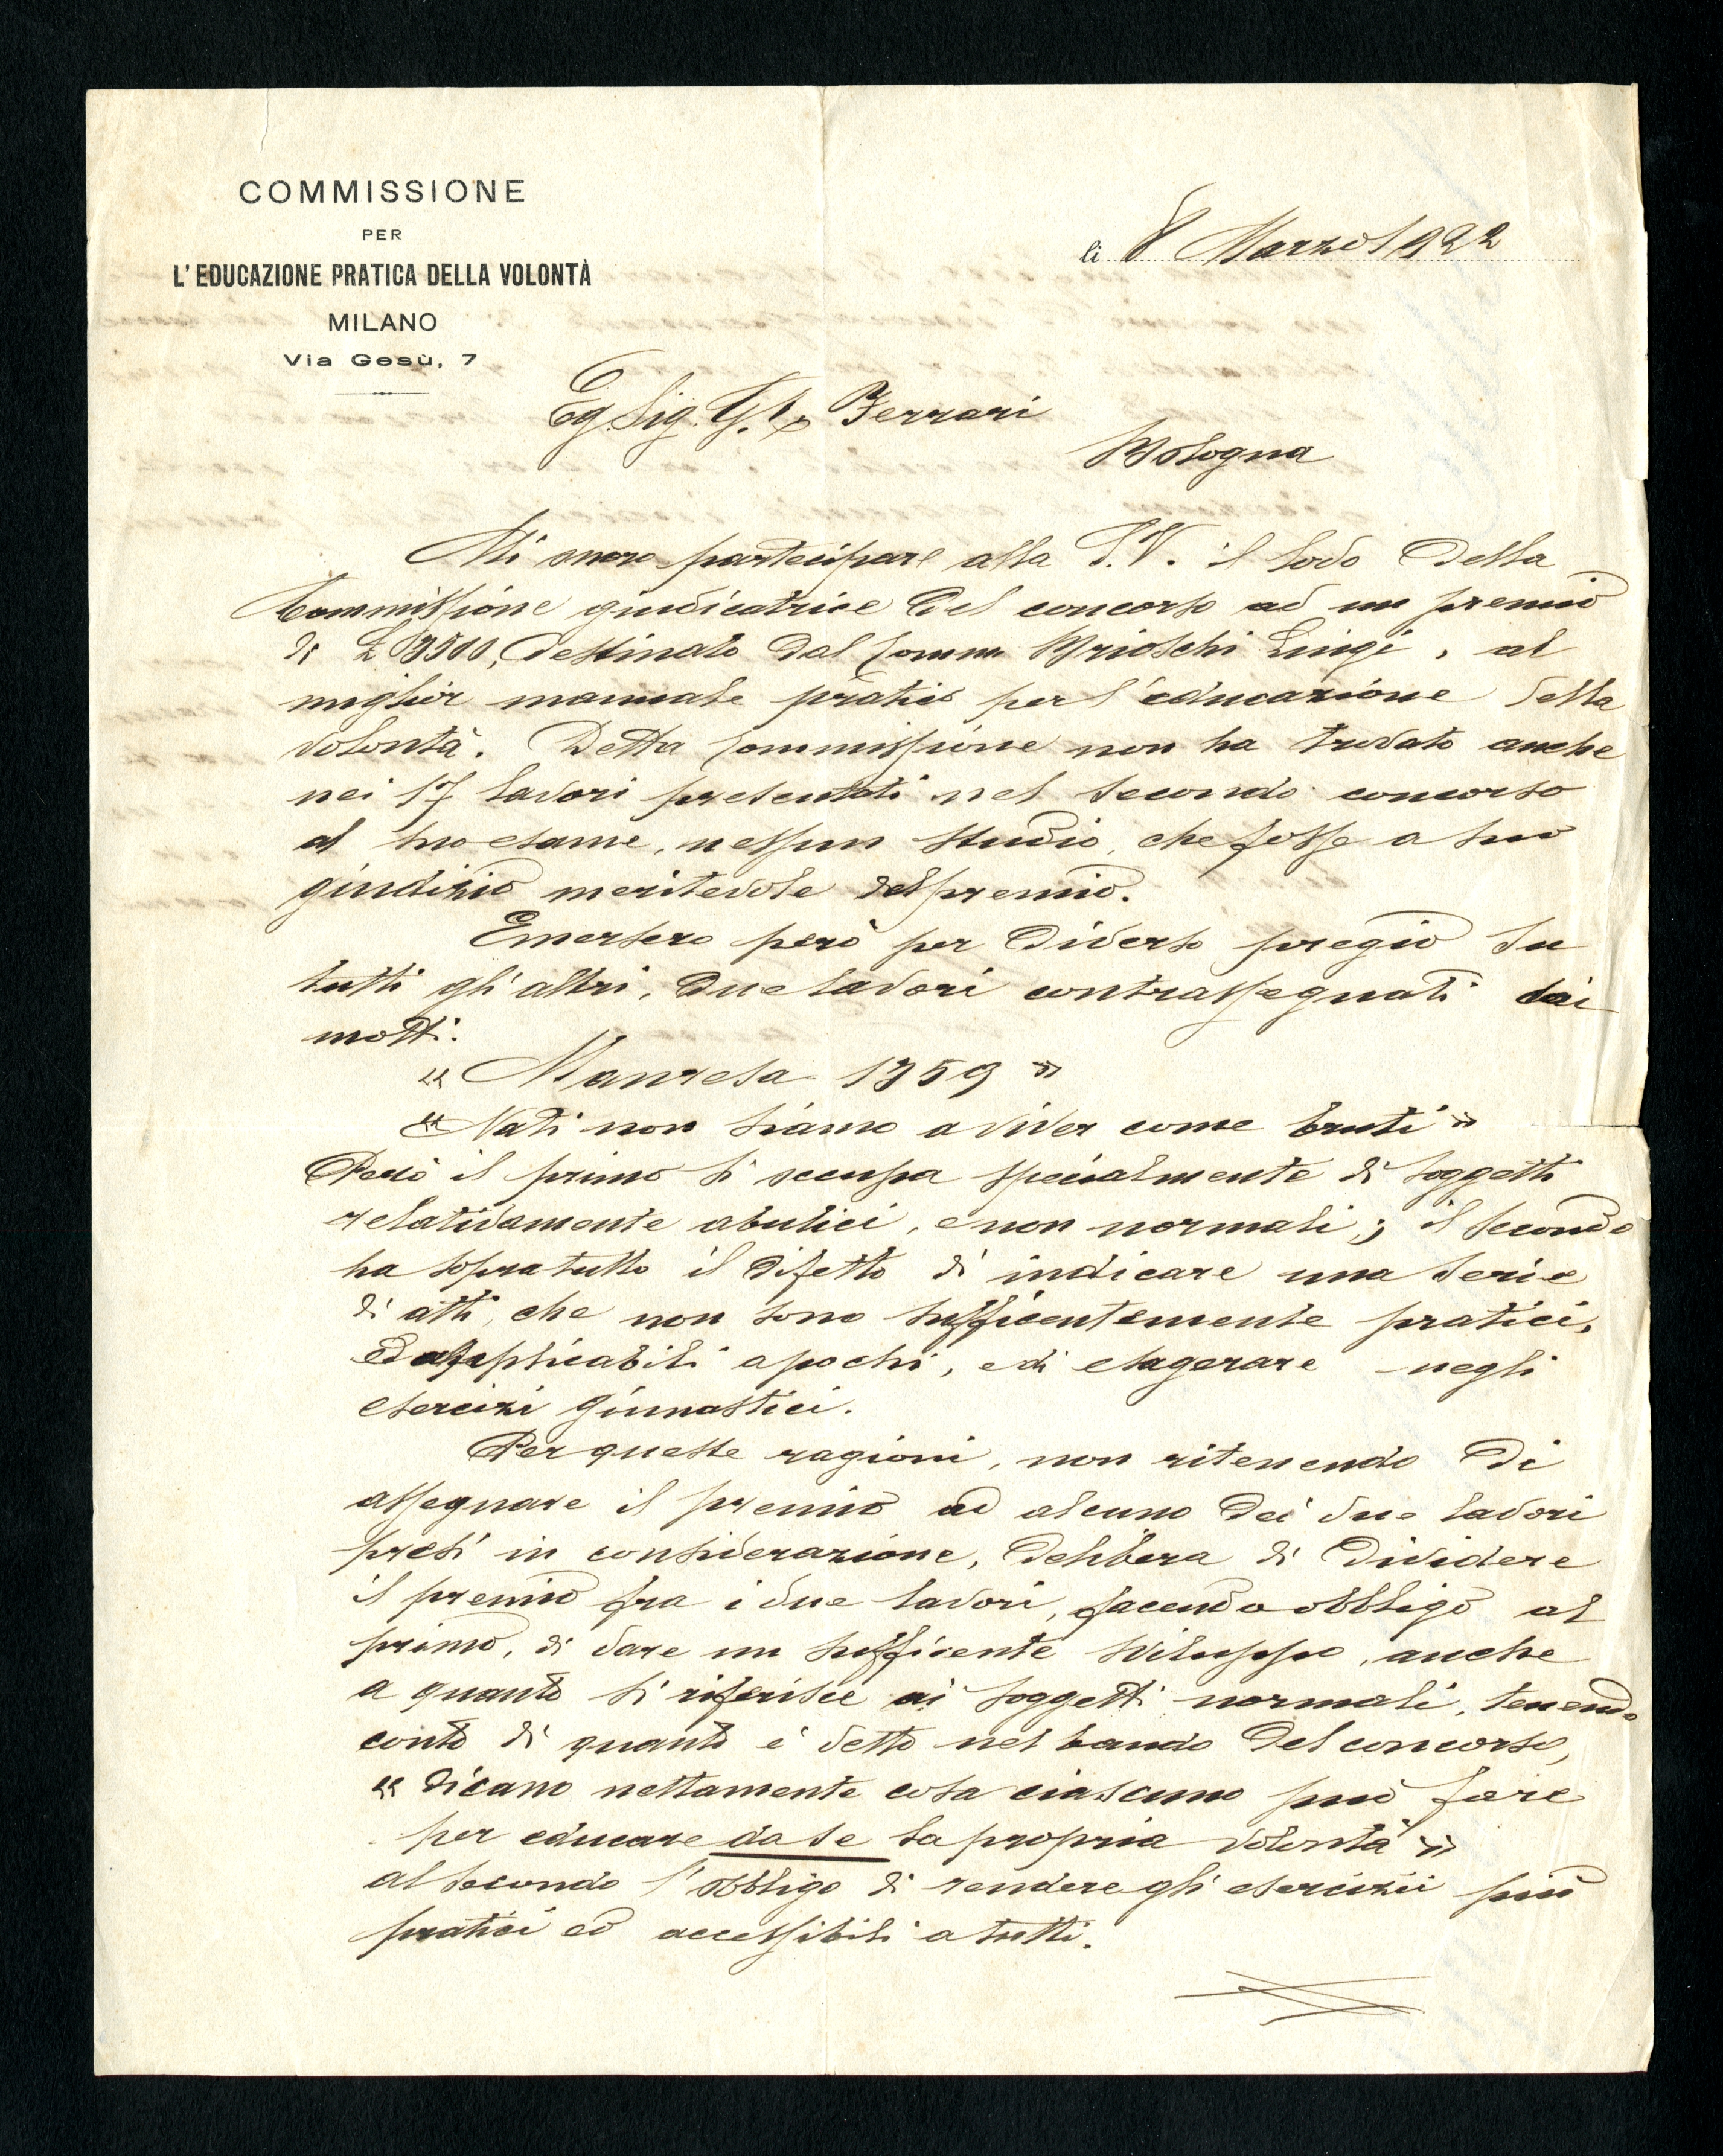 COMMISSIONE
PER
L'EDUCAZIONE PRATICA DELLA VOLONTÀ
MILANO
Via Gesù, 7
li 8 Marzo 1922
Eg. Sig. Ferrari
Bologna
Mi onoro partecipare alla S.V. il lodo della
Commissione giudicatrice del concorso ad un premio
di L 3500, destinato dal Comm Brioschi Luigi, al
miglior manuale pratico per l'educazione della
volontà. Detta Commissione non ha trovato anche
nei 17 lavori presentati nel secondo concorso
al suo esame, nessun studio, che fosse a suo
giudizio meritevole del premio.
Emersero però per diverso pregio su
tutti gli altri, due lavori contrassegnati dai
motti.
« Manresa 1359 »
« Nati non siamo a viver come bruti »
Però il primo si occupa specialmente di soggetti
relativamente abulici, e non normali; il secondo
ha sopratutto il difetto di indicare una serie
di atti, che non sono sufficentemente pratici,
ed applicabili a pochi, e di esagerare negli
esercizi ginnastici.
Per queste ragioni, non ritenendo di
assegnare il premio ad alcuno dei due lavori
presi in considerazione, delibera di dividere
il premio fra i due lavori, facendo obbligo al
primo, di dare un sufficente sviluppo, anche
a quanto si riferisce ai soggetti normali, tenendo
conto di quanto è detto nel bando del concorso,
« dicano nettamente cosa ciascuno può fare
per educare da se la propria volontà »
al secondo l'obbligo di rendere gli esercizii più
pratici ed accessibili a tutti.